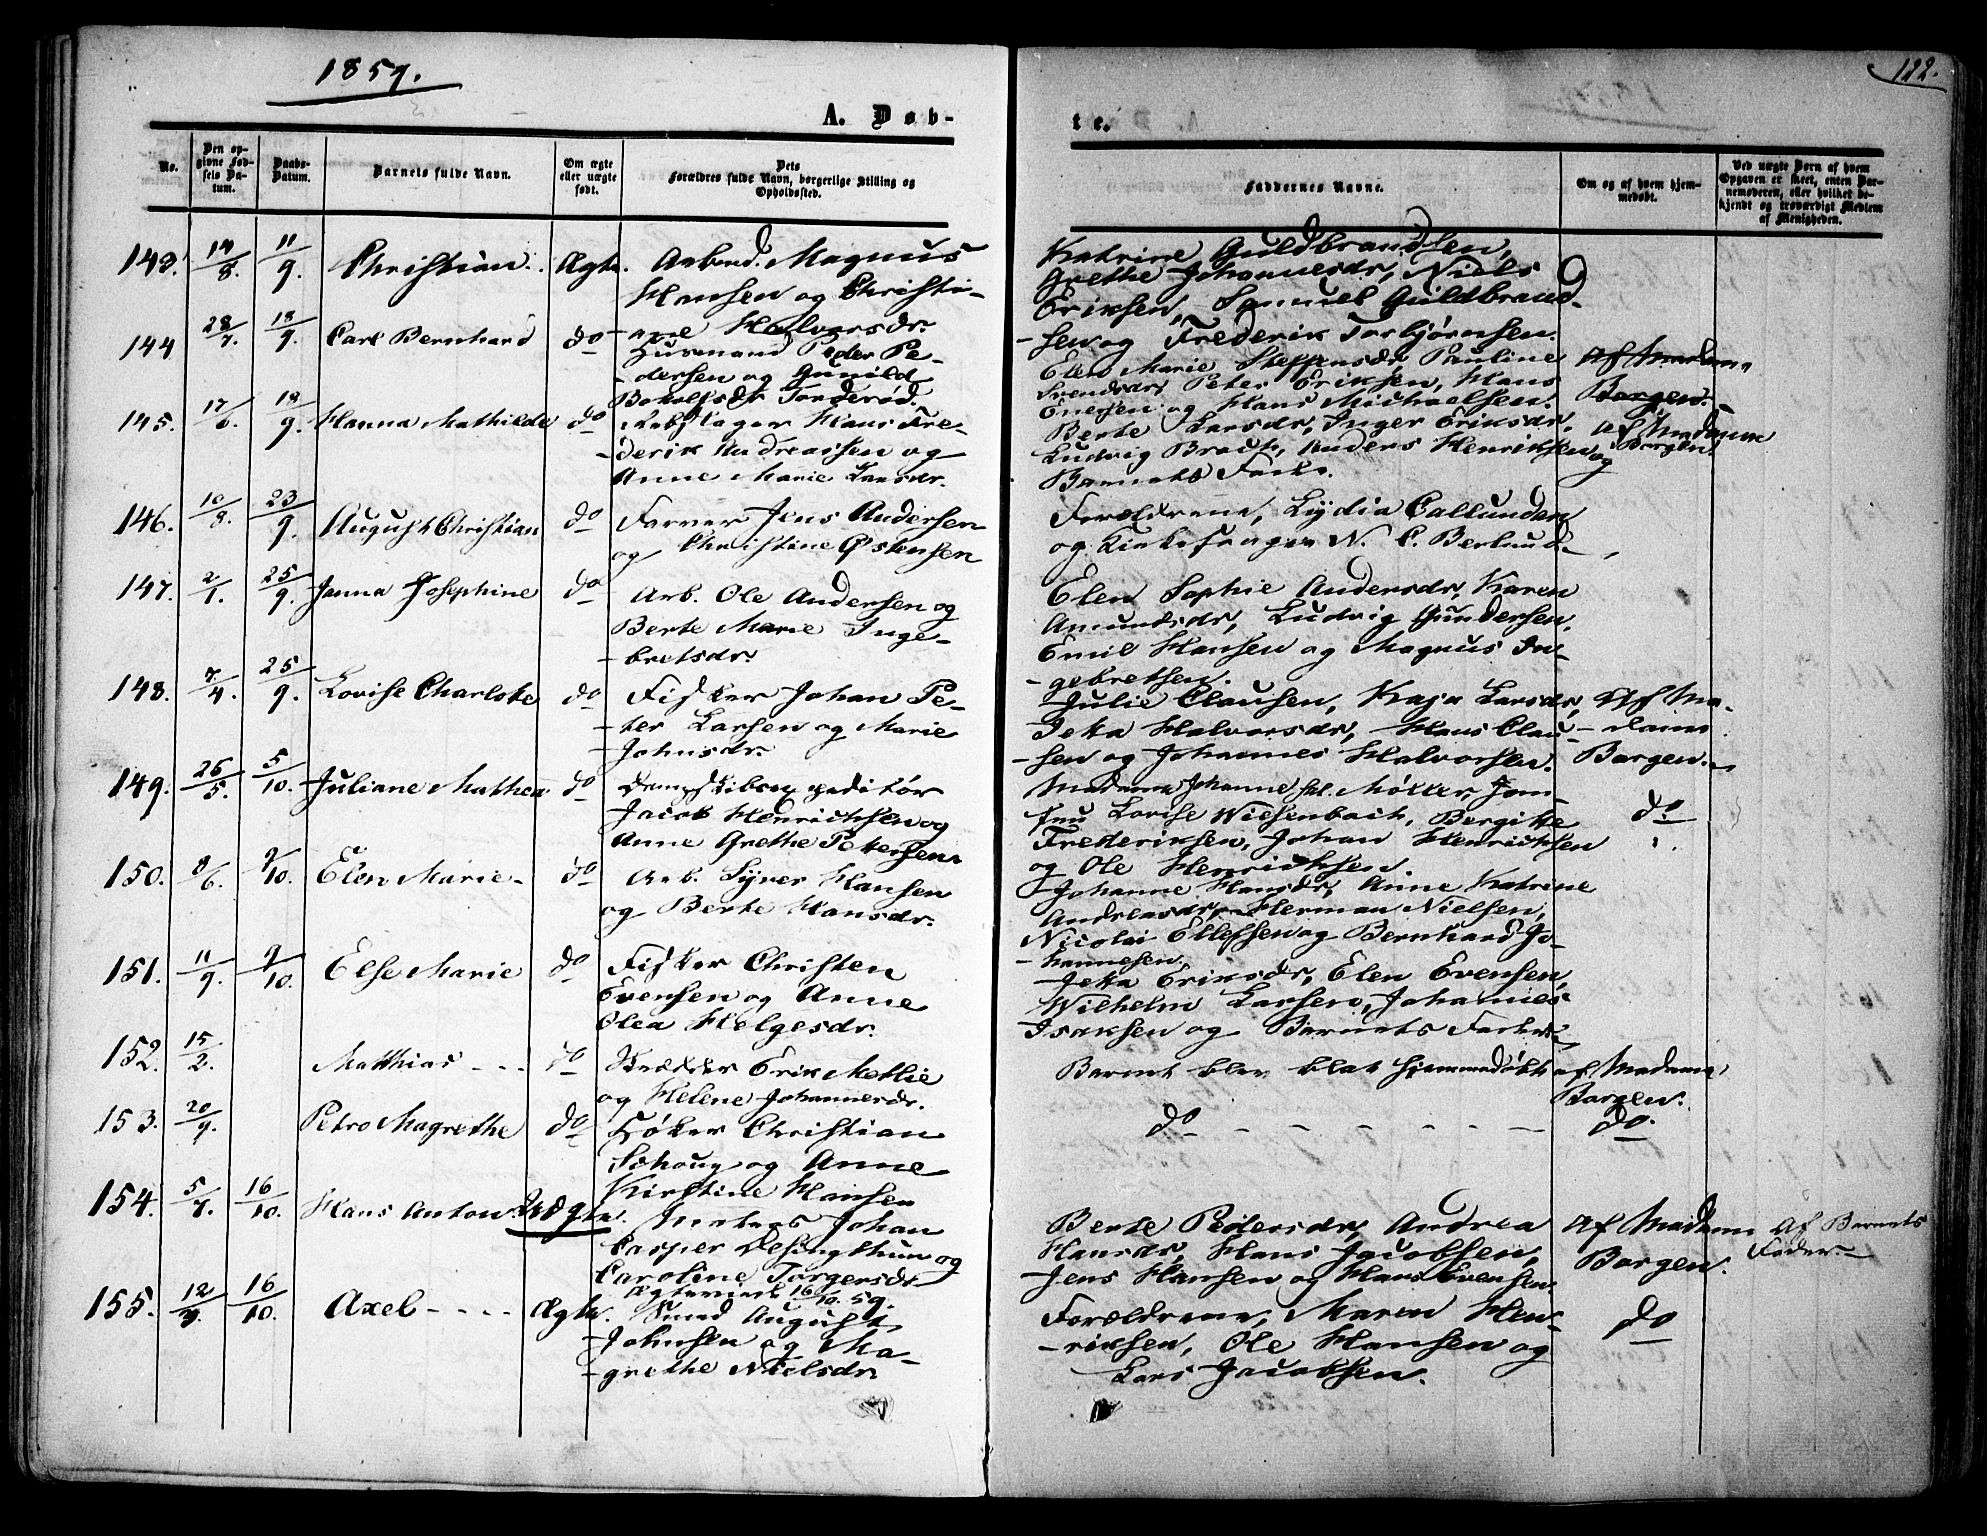 1859.
122.
A. Døb-
te.
No.
Den op-
givne Fød-
sels Da-
tum.
Daabs-
Datum.
Barnets fulde Navn.
Om ægte
eller uægte
født.
Dets
Forældres fulde Navn, borgerlige Stilling og
Opholdssted.
Faddernes Navne.
Om og af hvem hjem-
medøbt.
Ved uægte Børn af hvem
Opgaven er skeet, enten Bar-
nemoderen, eller hvilket be-
kjendt og troværdigt Medlem
af Menigheden.
143. 14/8. 11/9. Christian. Ægte. Arbmd. Magnus
Hansen og Christi-
-ane Halvorsdr.
Katrine Guldbrandsen,
Grethe Johannesdr, Niels
Eriksen, Samuel Guldbrand-
-sen og Frederik Torbjørnsen.
144 28/7. 18/9. Carl Bernhard do Husmand Peder Pe-
-dersen og Gunild
Bokolfsdr Tonderød.
Elen Marie Steffensdr, Pauline
Svendsdr, Peter Eriksen, Hans
Enersen og Hans Michaelsen.
Af Madam
Borgen.
145. 17/6. 18/9. Hanna Mathilde do Rebslager Hans Fre-
-derik Andreassen og
Anne Marie Larsdr.
Berte Larsdr, Inger Eriksdr,
Ludvig Brath, Anders Henriksen og
Barnets Fader.
Af Madame
Borgen.
146. 10/8. 23/9. August Christian do Farver Jens Andersen
og Christine Østensen
Forældrene, Lydia Callunden
og Kirkesanger N. C. Berlund.
147. 2/1. 25/9. Janna Josephine do Arb. Ole Andersen og
Berte Marie Inge-
-bretsdr.
Elen Sophie Andersdr, Karen
Amundsdr, Ludvig Gundersen,
Emil Hansen og Magnus In-
-gebretsen.
148. 7/4. 25/9. Lovise Charlotte do Fisker Johan Pe-
-ter Larsen og Marie
Johnsdr.
Julie Clausen, Kaja Larsdr,
Jeka Halvorsdr, Hans Clau-
-sen og Johannes Halvorsen.
Af Ma-
-dame
Borgen.
149. 26/5. 5/10. Juliane Mathea do Dampskibsexpeditør
Jacob Henrichsen og
Anne Grethe Petersen.
Madame Johanne Møller, Jom-
fru Lovise Wiesenbach, Bergitte
Frederiksen, Johan Henrichsen
og Ole Henrichsen.
do
150. 8/6. 9/10. Elen Marie do Arb. Syver Hansen
og Berte Hansdr.
Johanne Hansdr, Anne Katrine
Andreasdr, Herman Nielsen,
Nicolai Ellefsen og Bernhard Jo-
-hannesen.
151. 11/9. 9/10. Else Marie do Fisker Christen
Evensen og Anne
Olea Helgesdr.
Jeka Eriksdr, Elen Evensen,
Wilhelm Larsen, Johannes
Isaksen og Barnets Fader.
152. 15/2. Matthias do Skrædder Erik Methie
og Helene Johannesdr.
Barnet blev blot hjemmedøbt af Madame
Borgen.
153. 20/9. Petro Magrethe do Høker Christian
Schoug og Anne
Kirstine Hansen
do do.
154. 5/7. 16/10. Hans Anton. Uægte. Matros Johan
Casper Desingthun og
Caroline Torgersdr
Ægteviede 16/10. 59.
Berte Pedersdr, Andrea
Hansdr, Hans Jacobsen,
Jens Hansen og Hans Evensen.
Af Madam
Borgen.
Af Barnets
Fader.
155. 12/9. 16/10. Axel Ægte. Smed August
Johnsen og Ma-
-grethe Nielsdr
Forældrene, Maren Hen-
-riksen, Ole Hansen og
Lars Jacobsen.
do